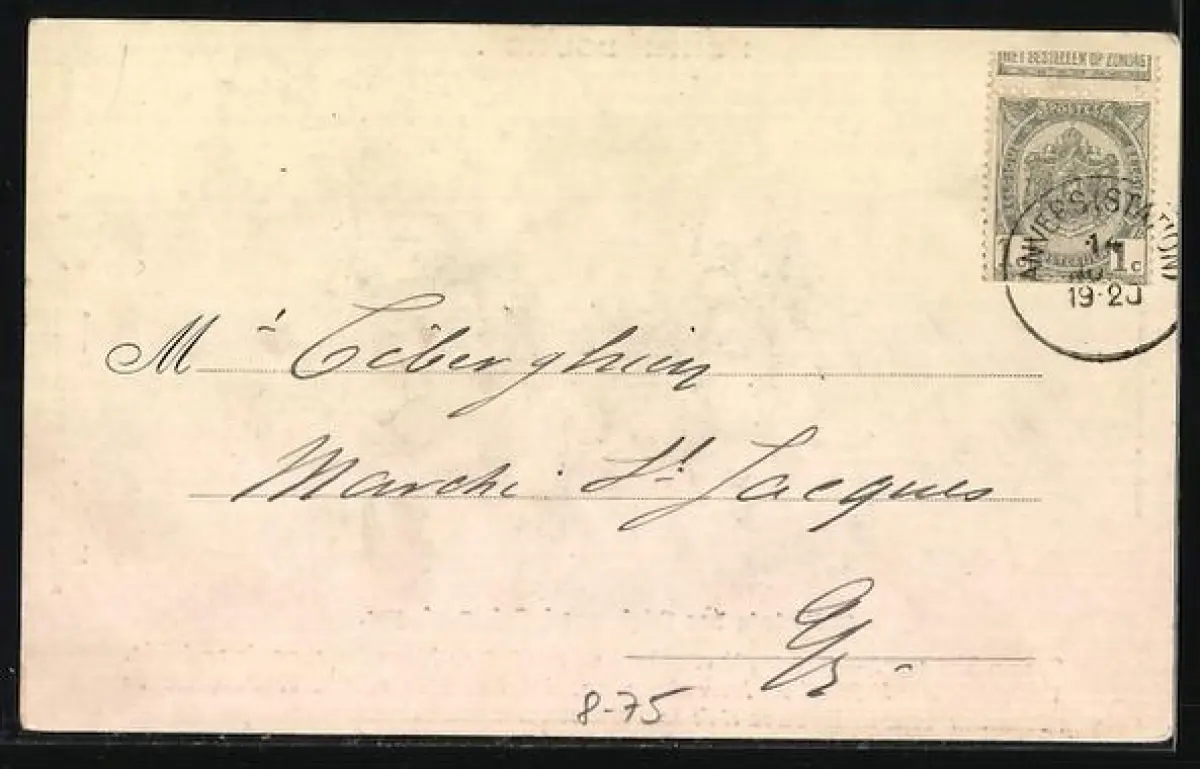 NIET BESTELLEN OP ZONDAG
POSTES
1c
ANVERS (STATION)
14
19-20
M
Tiberghien
Marché St Jacques
8-75